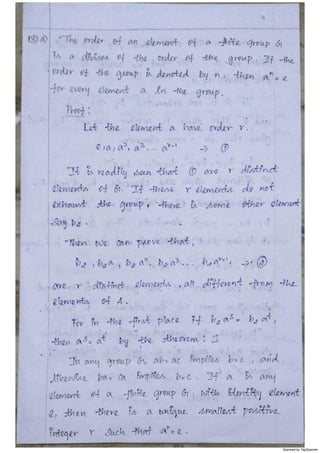 4
13) a) "The order of an element of a finite group G
is a divisor of the order of the group. If the
order of the group is denoted by n, then aⁿ = e
for every element a in the group.
Proof:
Let the element a have order r.
e, a, a², a³ ... aʳ⁻¹ → ①
It is readily seen that ① are r distinct
elements of G. If these r elements do not
exhaust the group, there is some other element
say b₂.
Then we can prove that,
b₂, b₂a, b₂a², b₂a³ ... b₂aʳ⁻¹, → ②
are r distinct elements, all different from the
elements of A.
For in the first place if b₂aˢ = b₂aᵗ,
then aˢ = aᵗ by the theorem: 1
In any group G, ab = ac implies b = c, and
likewise ba = ca implies b = c. If a is any
element of a finite group G, with identity element
e, then there is a unique smallest positive
integer r such that aʳ = e.
Scanned by TapScanner